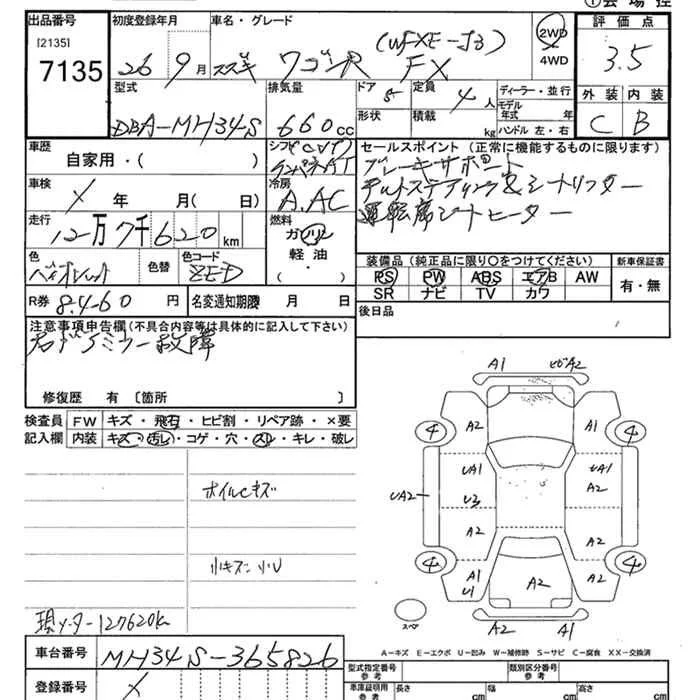 ①会場控
出品番号 初度登録年月 車名・グレード 評価点
[2135]
7135
26 9月 スズキ ワゴンR FX
2WD
4WD
3.5
型式 排気量 ドア 5 定員 4人 ディーラー・並行
DBA-MH34S 660cc 形状 積載 kg モデル年式 年
ハンドル 左・右
外装 内装
C B
車歴 自家用・( ) シフト
冷房 A.AC
セールスポイント(正常に機能するものに限ります)
ブレーキサポート
チルトステアリング&シートリフター
運転席シートヒーター
車検 年 月( 日)
走行 12万7千620km
燃料 ガソリン
軽油
・( )
色 色替 色コード ZED
装備品(純正品に限り〇をつけてください) 新車保証書
PS PW ABS エアB AW
SR ナビ TV カワ
有・無
R券 8460円 名変通知期限 月 日
後日品
注意事項申告欄(不具合内容等は具体的に記入して下さい)
右ドアミラー故障
修復歴 有 〔箇所 〕
検査員 FW キズ・飛石・ヒビ割・リペア跡・×要
記入欄 内装 キズ・汚レ・コゲ・穴・スレ・キレ・破レ
ホイルキズ
小キズ 小U
現メーター127620k
A1 A2
4 A2 A2 4
UA1 UA1
UA2 U3 A2
A2 A2
4 A1 A2 A2 4
U1
スペア A2 A1
A-キズ E-エクボ U-凹み W-補修跡 S-サビ C-腐食 XX-交換済
車台番号 MH34S-365826
登録番号 ×
型式指定番号 参考 類別区分番号 参考
車庫証明用 参考 長さ cm 幅 cm 高さ cm